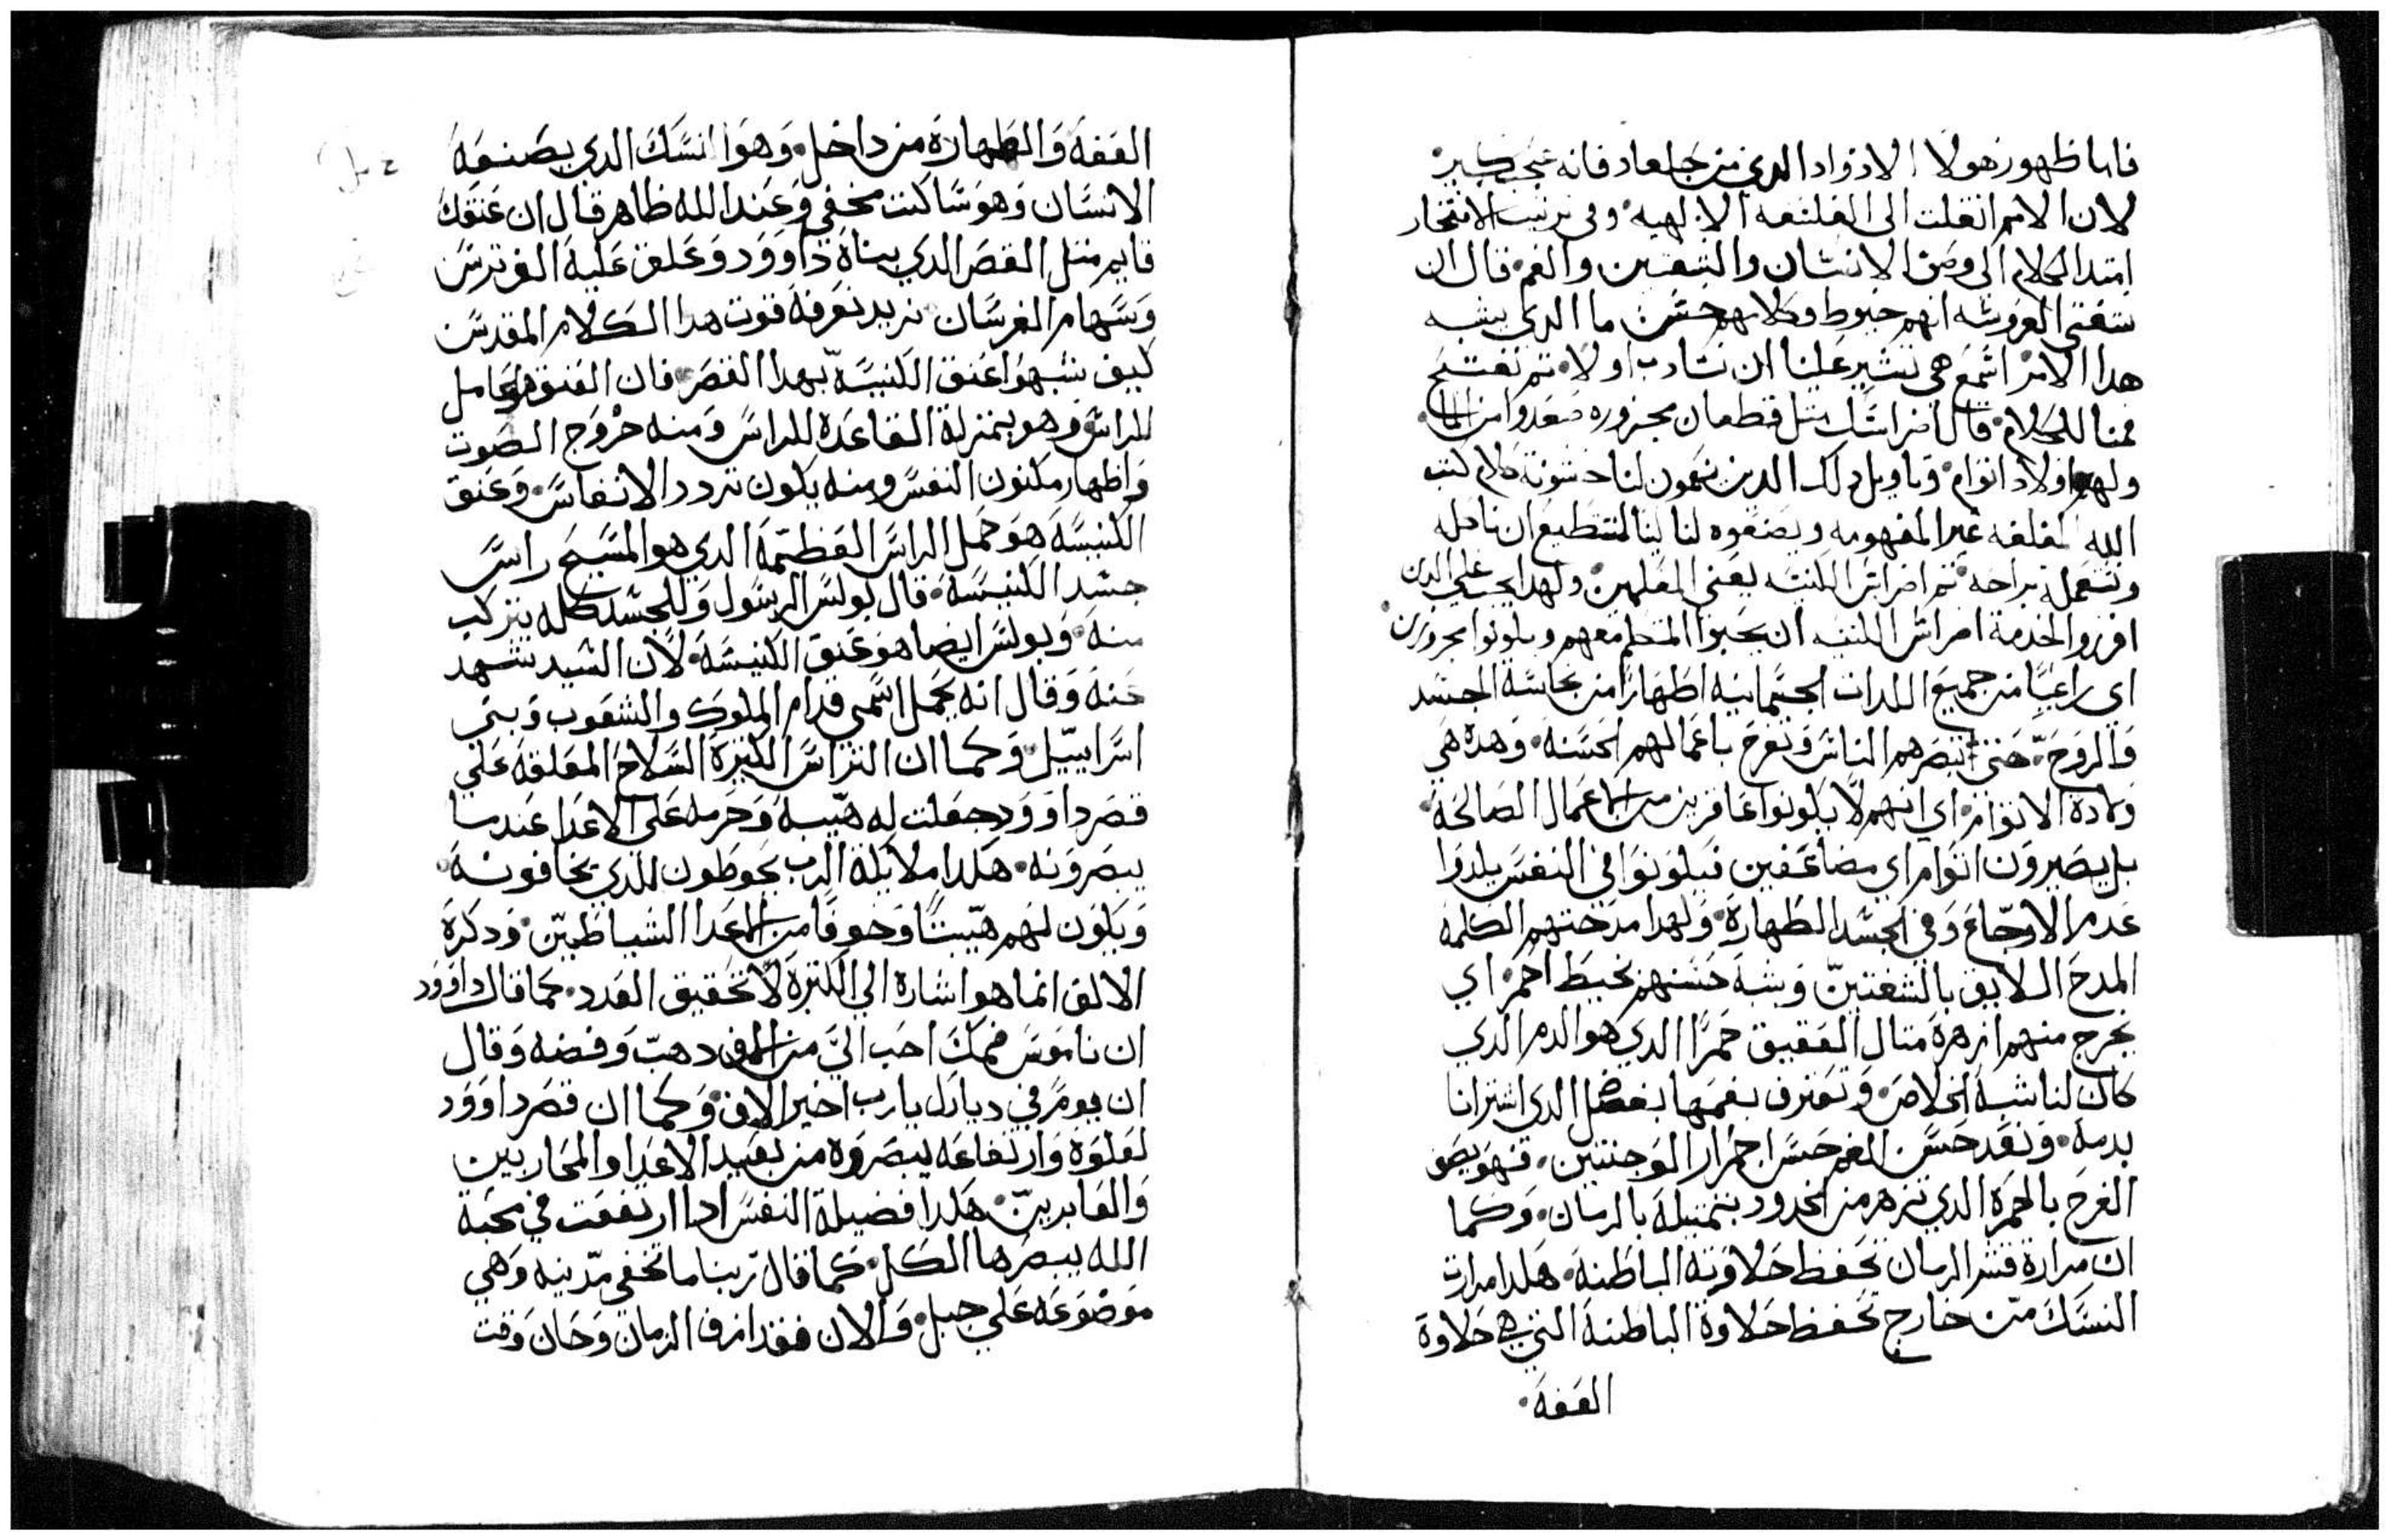 فاما ظهور هولا الاذواد الدي من جلعاد فانه عجب كبير
لان الامم انتقلت الى الفلسفه الالهيه وفي ترتيب الافتخار
امتد الكلام الى وصف الانسان والشفتين والفم قال ان
شفتى العروسه انهم خيوط وكلامهم حسن ما الدي يشبه
هدا الامر اسمع هي تشير علينا ان نتادب اولا تم نفتح
فمنا للكلام قال اضراسك متل قطعان مجزوره صعدوا من الما
ولهم اولاد اتوام وتاويل دلك الدين ينعمون لنا خشونة كلام كتب
الله المغلقه غير المفهومه ويضعوه لنا لينا لنستطيع ان ناكله
ونستعمله براحه تم اضراس الكنيسه يعني المعلمين ولهدا يجب على الدين
افرزوا لخدمة اضراس الكنيسه ان يحبوا المتعلم معهم ويكونوا مجزوزين
اي راعيا من جميع اللدات الجسمانيه اطهارا من نجاسة الجسد
والروح حتى تبصرهم الناس وتفرح باعمالهم الحسنه وهده هي
ولادة الاتوام اي انهم لا يكونوا عاقرين من الاعمال الصالحه
بل يصيرون اتوام اي مضاعفين فيكونوا في النفس يلدوا
عدم الاوجاع وفي الجسد الطهارة ولهدا مدحتهم الكلمه
المدح اللايق بالشفتين وشبه حسنهم بخيط احمر اي
يخرج منهم ازهرة متال العقيق حمرا الدي هو الدم الدي
كان لنا شبه الخلاص وتعترف بفمها بفضل الدي اشترانا
بدمه وبعد حسن الفم حسن احمرار الوجنتين فهو يصف
الفرح بالحمرة الدي تزهر من الخدود بتمتيله بالرمان وكما
ان مرارة قشر الرمان تحفظ حلاوته الباطنه هكدا مرارت
النسك من خارج تحفظ حلاوة الباطنه التي هي حلاوة
العفه
العفه والطهارة من داخل وهوا انسك الدي يصنعه
الانسان وهو ساكت مخفي وعند الله ظاهر قال ان عنقك
قايم متل القصر الدي بناه داوود وعلق عليه الف ترس
وسهام الفرسان نريد نعرفه قوت هدا الكلام المقدس
كيف شبهوا عنق الكنيسه بهدا القصر فان العنق هو حامل
للراس وهو بمنزلة القاعده للراس ومنه خروج الصوت
واظهار مكنون النفس ومنه يكون تردد الانفاس وعنق
الكنيسه هو حمل الراس العظيمه الدي هو المسيح راس
جسد الكنيسه قال بولس الرسول وللجسد كله يتركب
منه وبولس ايضا هو عنق الكنيسه لان السيد شهد
عنه وقال انه يحمل اسمي قدام الملوك والشعوب وبني
اسراييل وكما ان التراس الكتيرة السلاح المعلقه على
قصر داوود جعلت له هيبه وحرمه على الاعدا عندما
يبصرونه هكدا ملايكة الرب يحوطون للدي يخافونه
ويكون لهم هيبتا وخوفا من الاعدا الشياطين ودكره
الالف انما هو اشاره الى الكترة لا تحقيق العدد كما قال داوود
ان ناموس فمك احب الي من الف دهب وفضه وقال
ان يوم في ديارك يارب اخير الاف وكما ان قصر داوود
لعلوه وارتفاعه يبصروه من بعيد الاعدا والمحاربين
والعابرين هكدا فضيلة النفس ادا ارتفعت في محبة
الله يبصرها الكل كما قال ربنا ما تخفى مدينه وهي
موضوعه على جبل والان فقد ازف الزمان وحان وقت